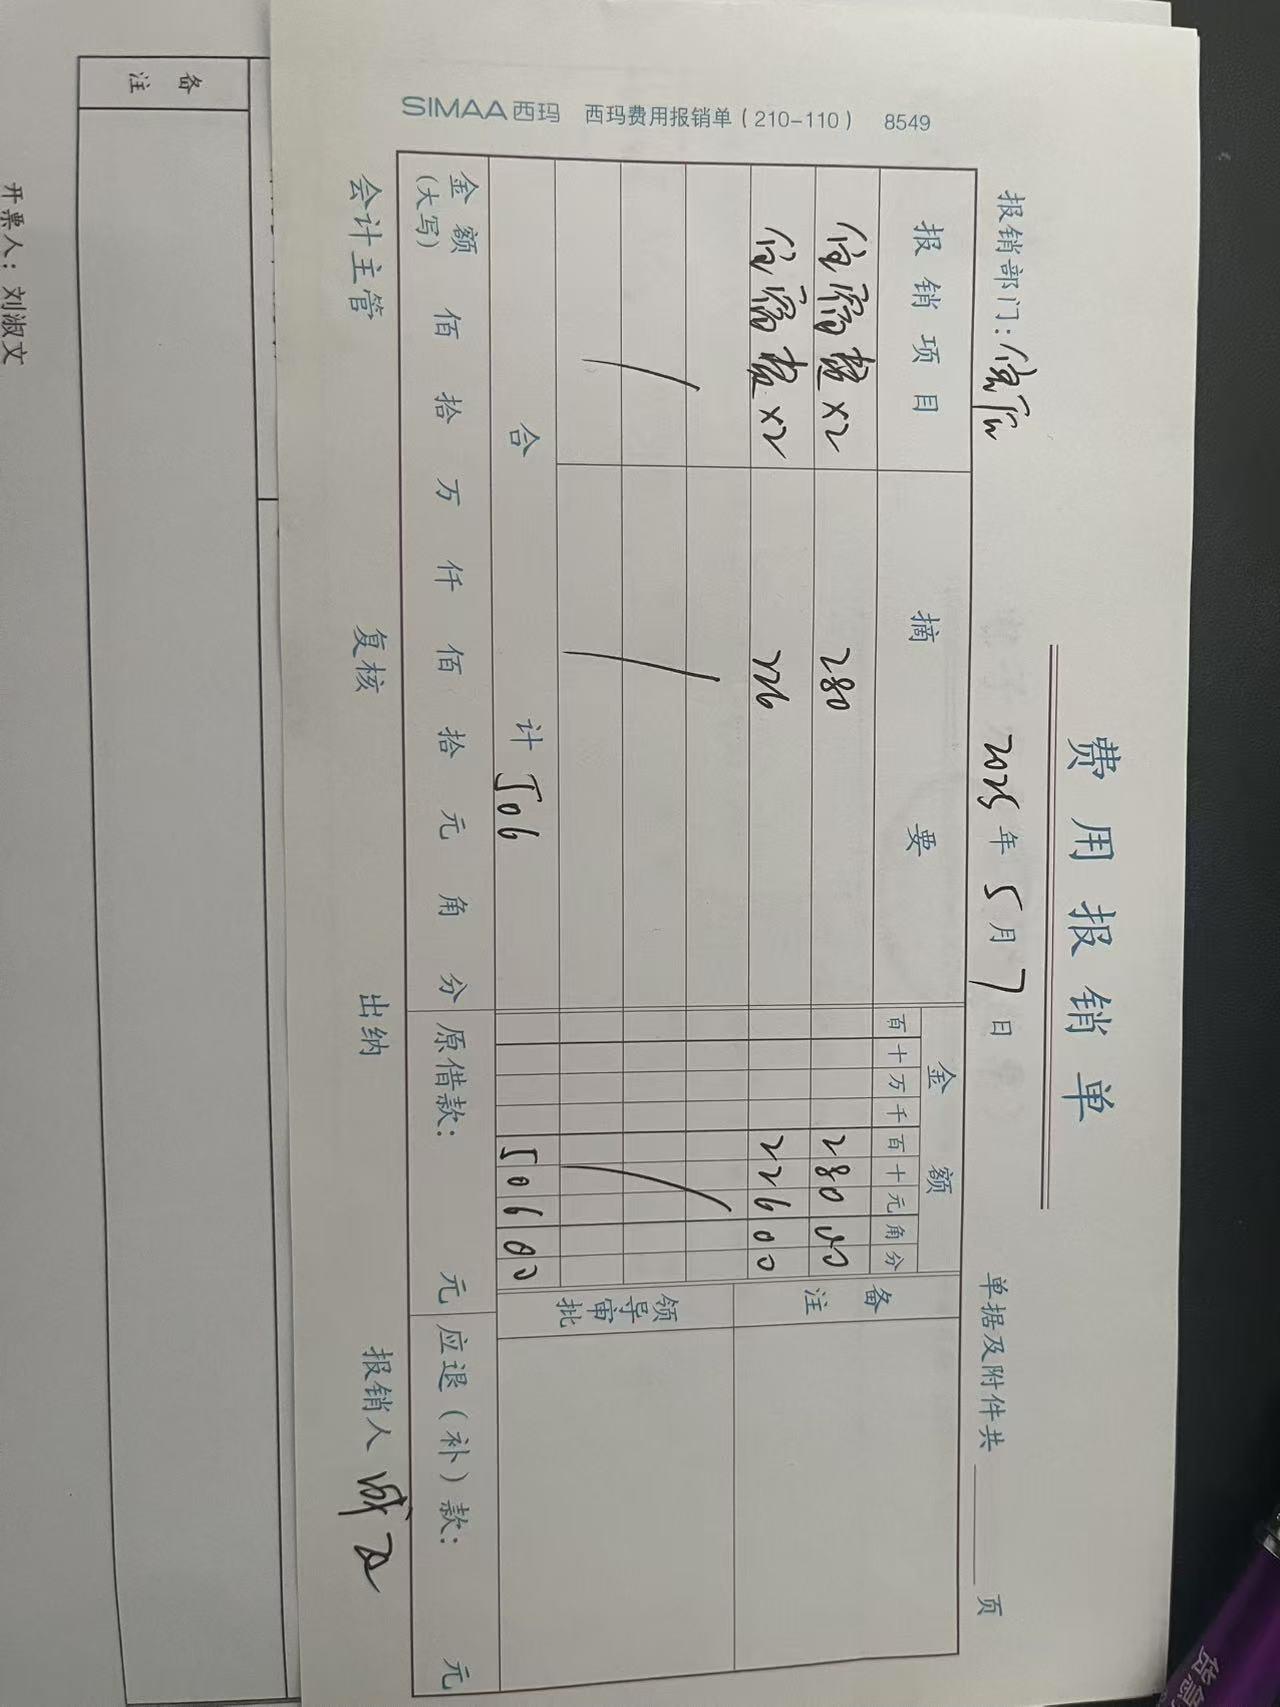 费用报销单
报销部门：
2025年5月7日
单据及附件共 页
报销项目
摘要
金额
百十万千百十元角分
备注
住宿费×2
280
28000
住宿费×2
226
22600
领导审批
合计 506
50600
金额(大写) 佰 拾 万 仟 佰 拾 元 角 分
原借款： 元
应退（补）款： 元
会计主管
复核
出纳
报销人
SIMAA西玛 西玛费用报销单(210-110) 8549
备注
开票人：刘淑文